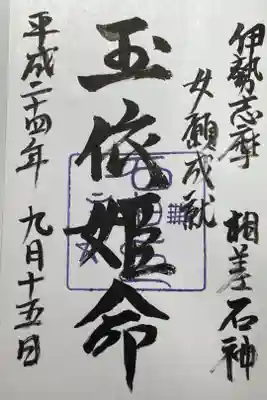 伊勢志摩 相差石神
女願成就
玉依姫命
平成二十四年 九月十五日